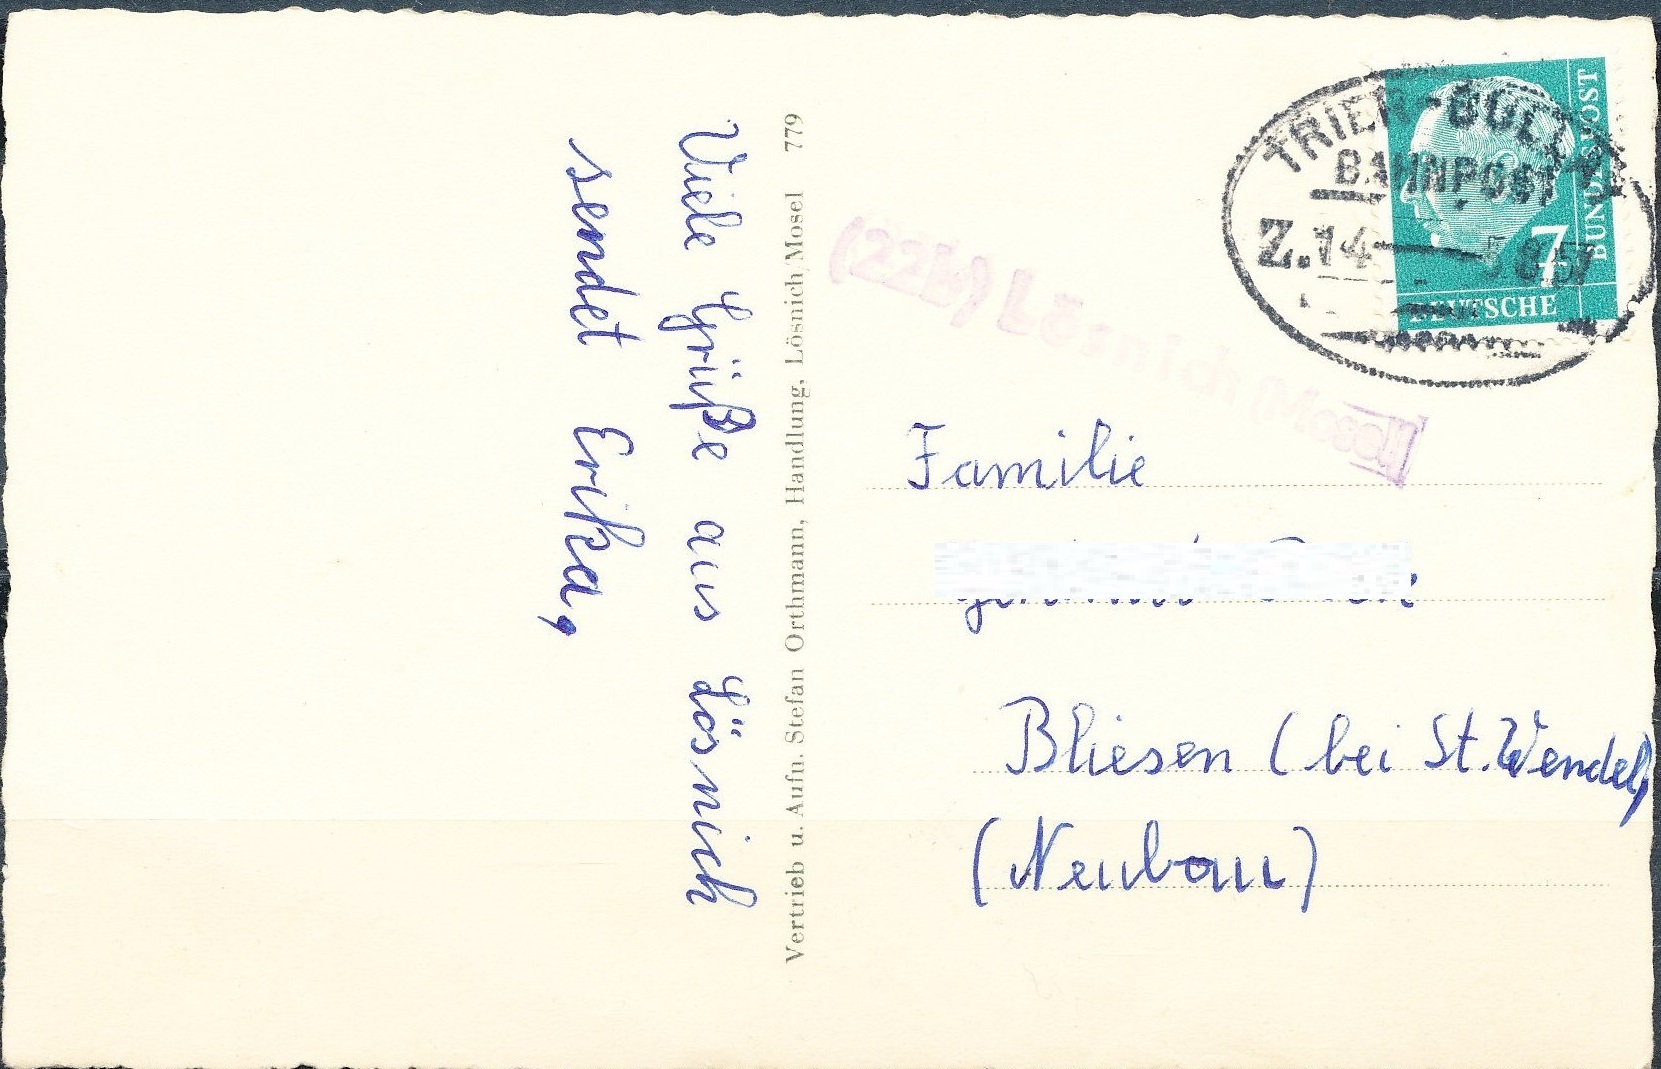 Viele Grüße aus Lösnich
sendet Erika,
Vertrieb u. Aufn. Stefan Orthmann, Handlung, Lösnich/Mosel 779
TRIER-BUL
BAHNPOST
Z.14
7
DEUTSCHE
BUNDESPOST
(22b) Lösnich/Mosel
Familie
Bliesen (bei St. Wendel,
(Neubau)